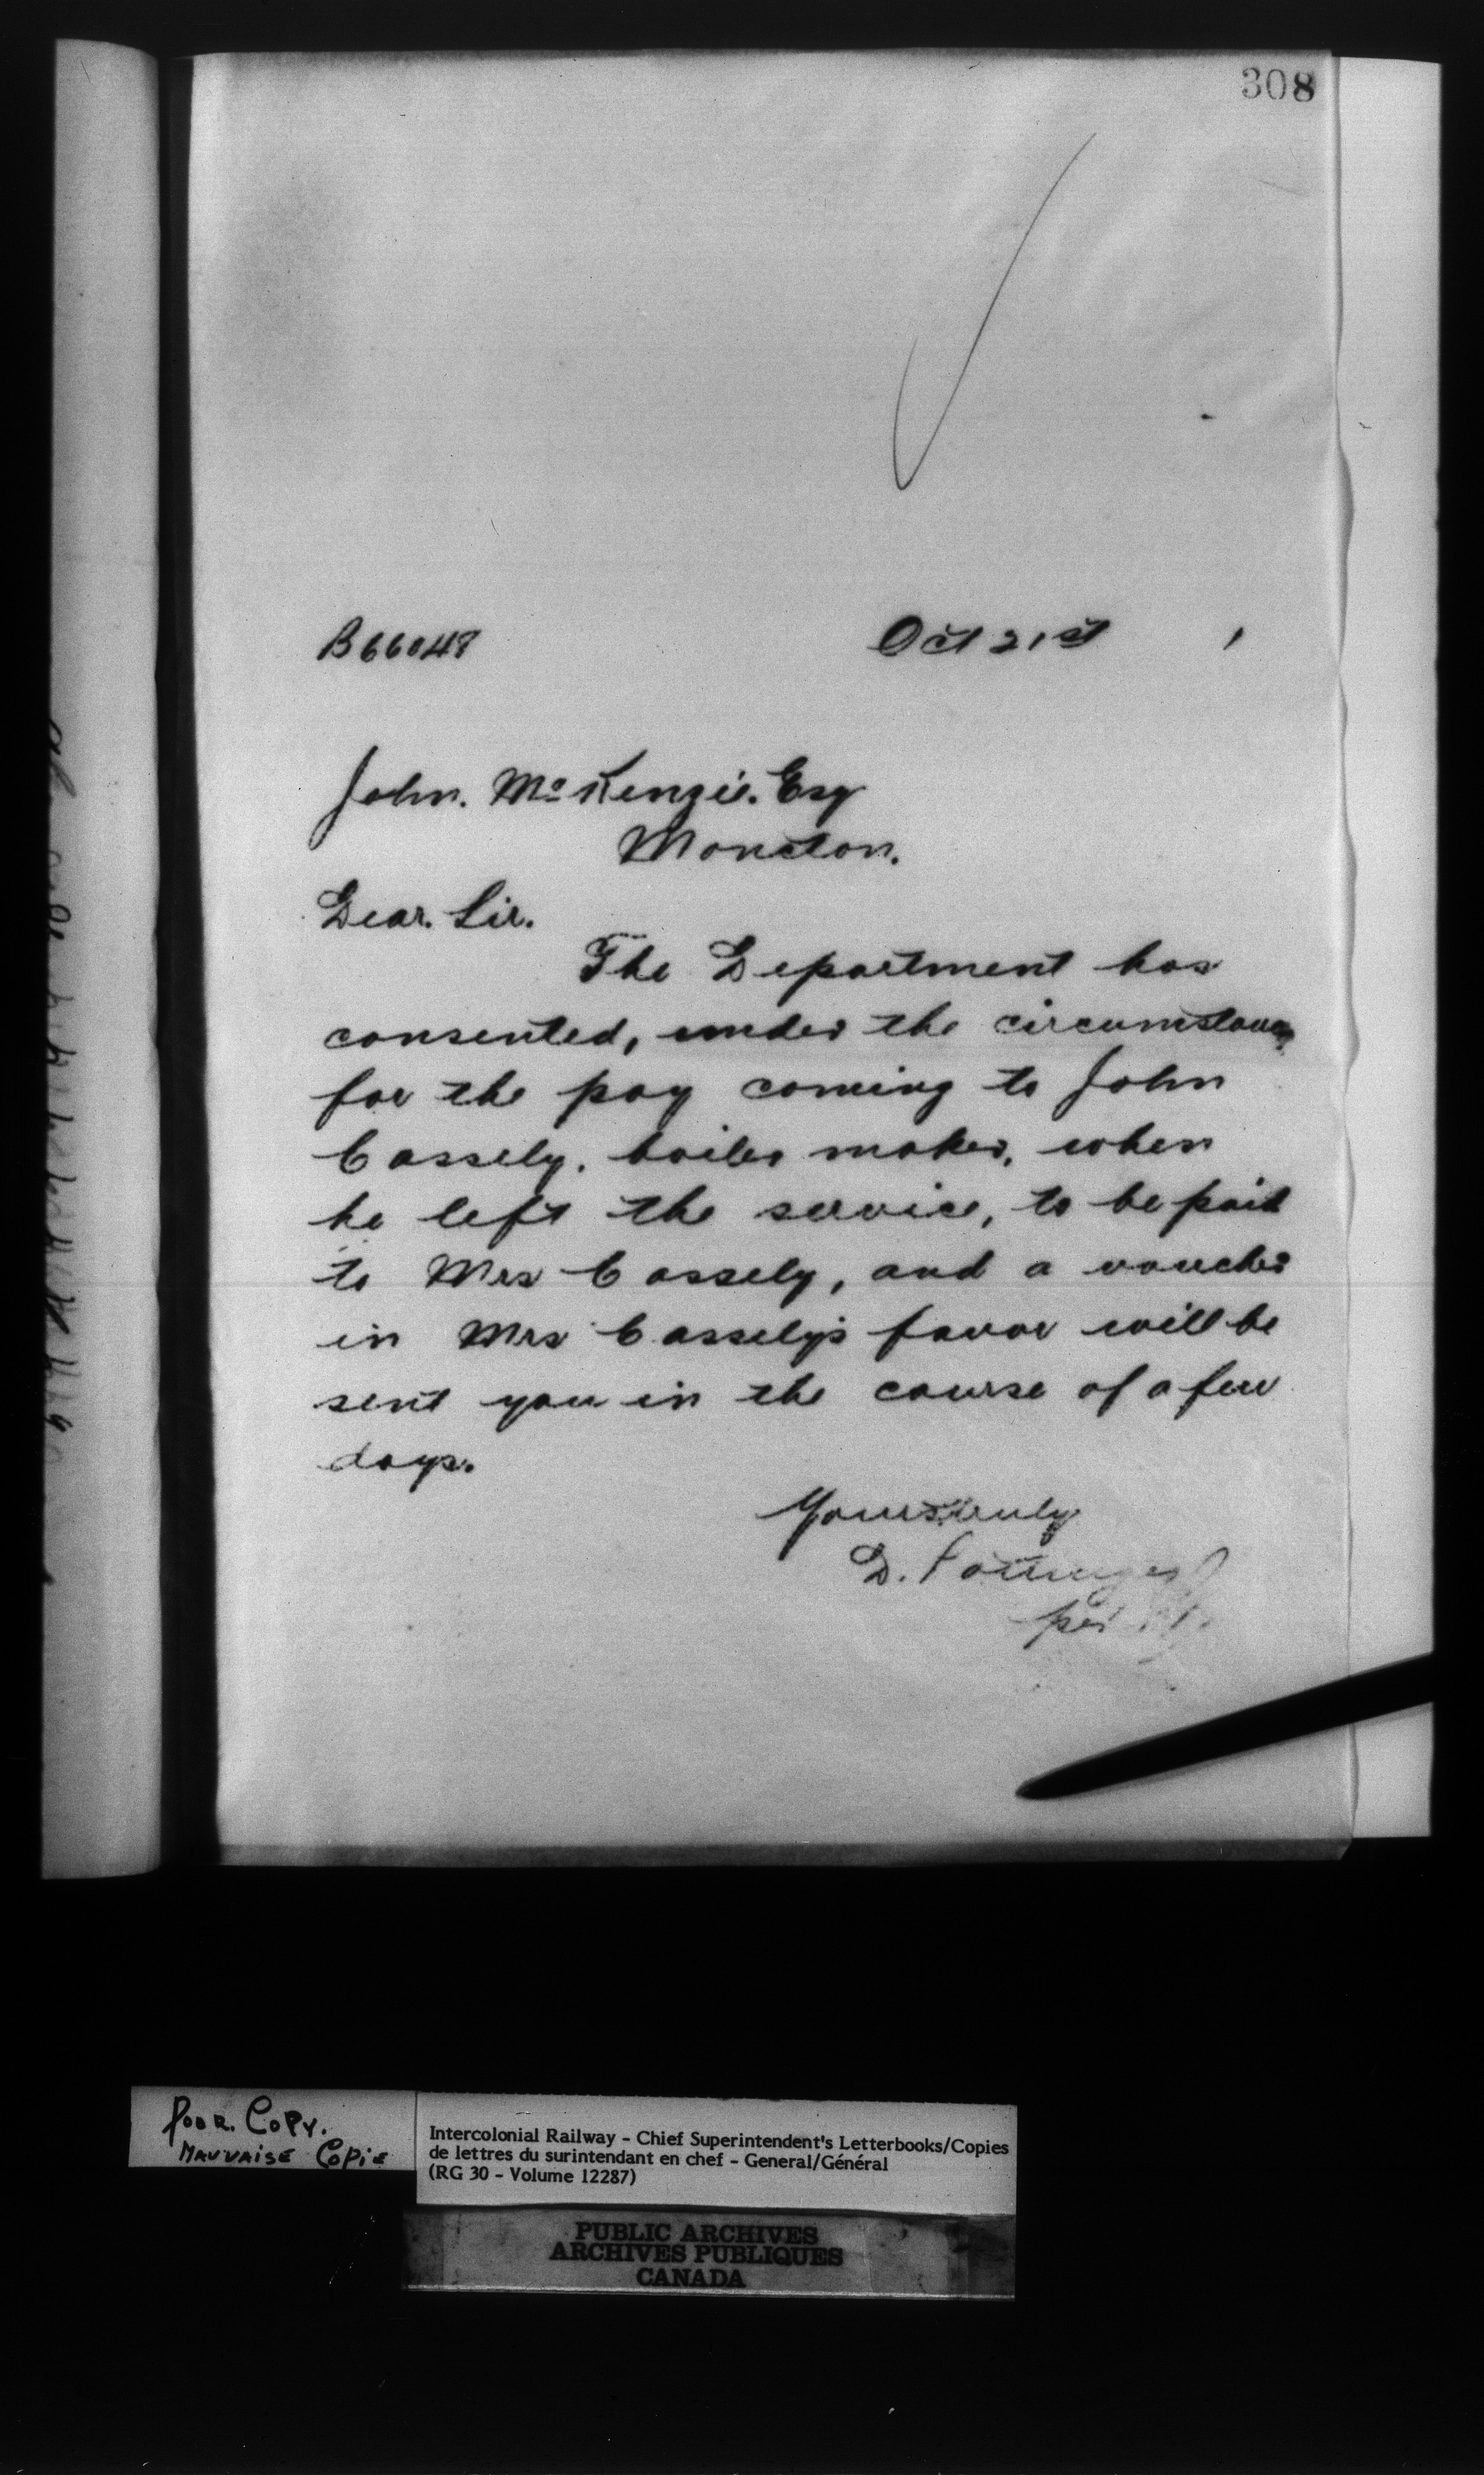 308
B66048
Oct 21st
John. McKenzie. Esq
Moncton.
Dear. Sir.
The Department has
consented, under the circumstances
for the pay coming to John
Cassely. boiler maker, when
he left the service, to be paid
to Mrs Cassely, and a voucher
in Mrs Cassely's favor will be
sent you in the course of a few
days.
Yours truly
D. Pottinger
per
Poor. Copy.
Mauvaise Copie
Intercolonial Railway - Chief Superintendent's Letterbooks/Copies
de lettres du surintendant en chef - General/Général
(RG 30 - Volume 12287)
PUBLIC ARCHIVES
ARCHIVES PUBLIQUES
CANADA